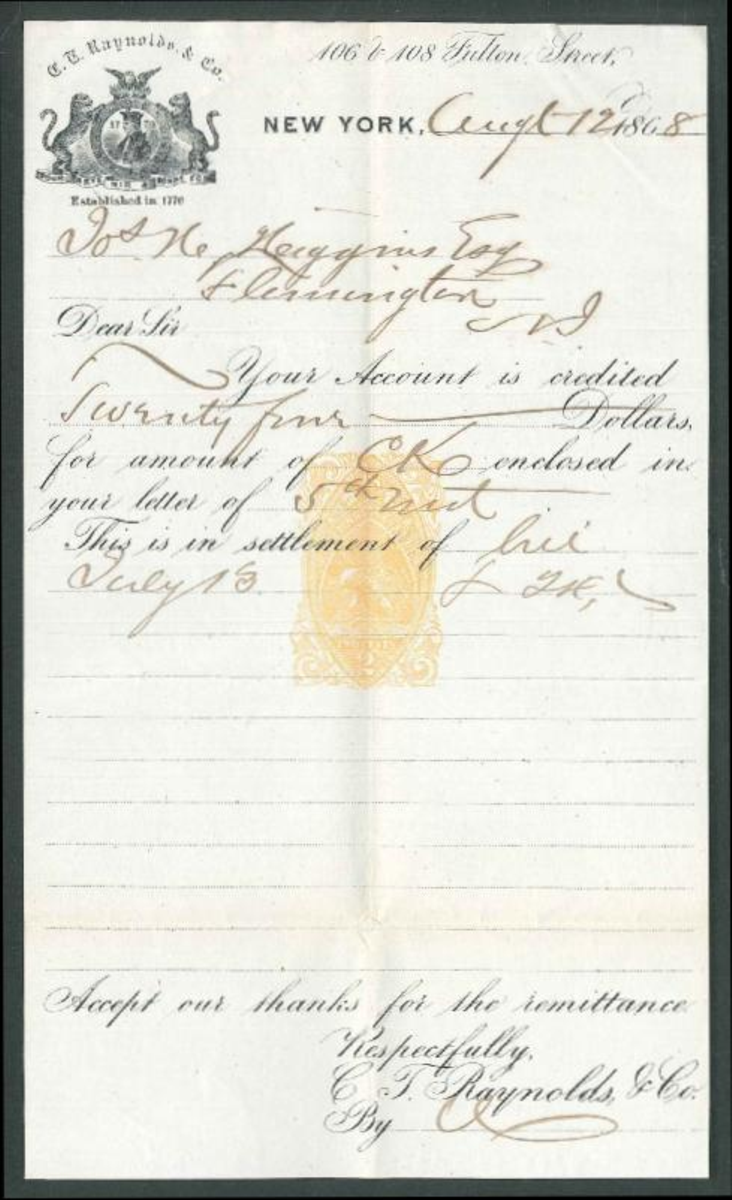 C. T. Raynolds, & Co.
106 & 108 Fulton Street,
NEW YORK, Augt 12 1868
Established in 1770
Higgins Esq
Flemington
NJ
Dear Sir
Your Account is credited
Twenty five Dollars,
for amount of CK enclosed in
your letter of
This is in settlement of
July 13
Accept our thanks for the remittance
Respectfully,
C. T. Raynolds, & Co.
By